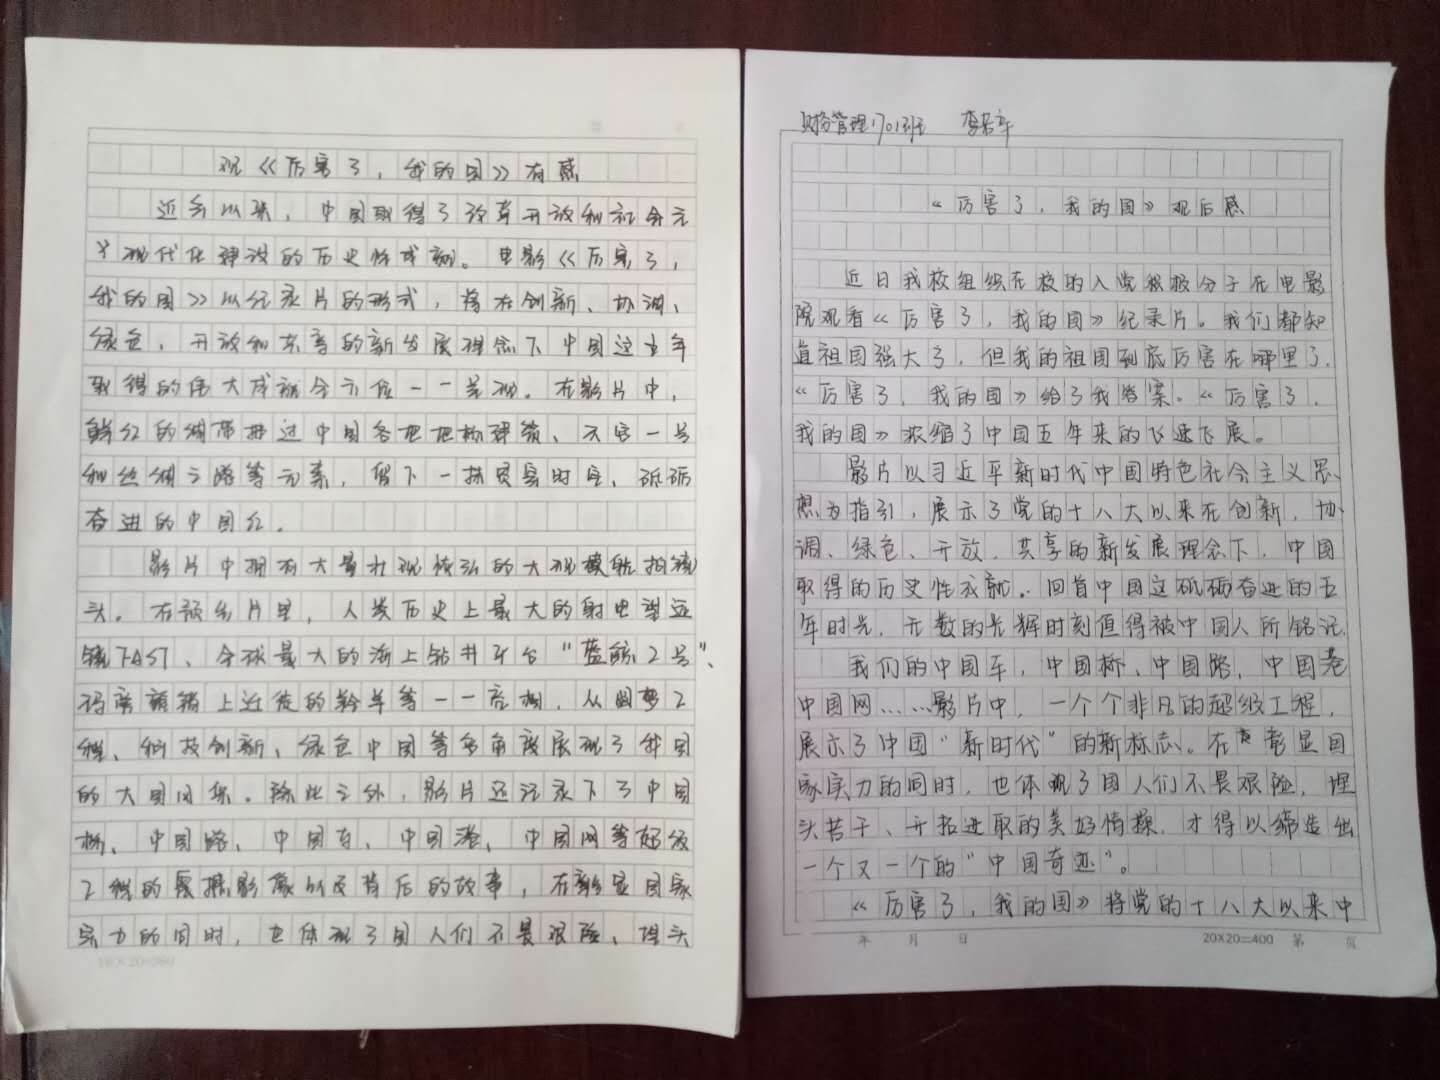 观《厉害了,我的国》有感
近年以来,中国取得了改革开放和社会主
义现代化建设的历史性成就。电影《厉害了,
我的国》以纪录片的形式,将在创新、协调、
绿色、开放和共享的新发展理念下中国这五年
取得的伟大成就全方位一一呈现。在影片中,
鲜红的绸带拂过中国各地地标建筑、天宫一号
和丝绸之路等元素,留下一抹贯穿时空、砥砺
奋进的中国红。
影片中拥有大量壮观恢弘的大规模航拍镜
头。在预告片里,人类历史上最大的射电望远
镜FAST、全球最大的海上钻井平台“蓝鲸2号”、
玛旁雍错上迁徙的羚羊等一一亮相,从圆梦工
程、科技创新、绿色中国等多角度展现了我国
的大国风采。除此之外,影片还记录下了中国
桥、中国路、中国车、中国港、中国网等超级
工程的震撼影像以及背后的故事,在彰显国家
实力的同时,也体现了国人们不畏艰险、埋头
18×20=360
财务管理1701班 李若
《厉害了,我的国》观后感
近日我校组织在校的入党积极分子在电影
院观看《厉害了,我的国》纪录片。我们都知
道祖国强大了,但我的祖国到底厉害在哪里了,
《厉害了,我的国》给了我答案。《厉害了,
我的国》浓缩了中国五年来的飞速飞展。
影片以习近平新时代中国特色社会主义思
想为指引,展示了党的十八大以来在创新、协
调、绿色、开放、共享的新发展理念下,中国
取得的历史性成就。回首中国这砥砺奋进的五
年时光,无数的光辉时刻值得被中国人所铭记。
我们的中国车,中国桥、中国路,中国港
中国网……影片中,一个个非凡的超级工程,
展示了中国“新时代”的新标志。在彰显国
家实力的同时,也体现了国人们不畏艰险,埋
头苦干、开拓进取的美好情操,才得以缔造出
一个又一个的“中国奇迹”。
《厉害了,我的国》将党的十八大以来中
年 月 日 20×20=400 第 页